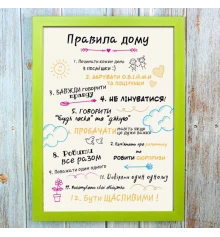 Правила дому
1. Починати кожен день
з посмішки :)
2. ДАРУВАТИ ОБІЙМИ
ТА ПОЦІЛУНКИ
3. ЗАВЖДИ ГОВОРИТИ
правду
4. НЕ ЛІНУВАТИСЯ!
5. ГОВОРИТИ
"будь ласка" та "дякую"
6. ПРОБАЧАТИ
НАВІТЬ ЯКЩО
ЦЕ ДУЖЕ ВАЖКО
7. про
РОБИТИ СЮРПРИЗИ
8. Робити
все разом
9. Поважати один одного
10. Довіряти один одному
11. свої обіцянки
12. Бути ЩАСЛИВИМИ!